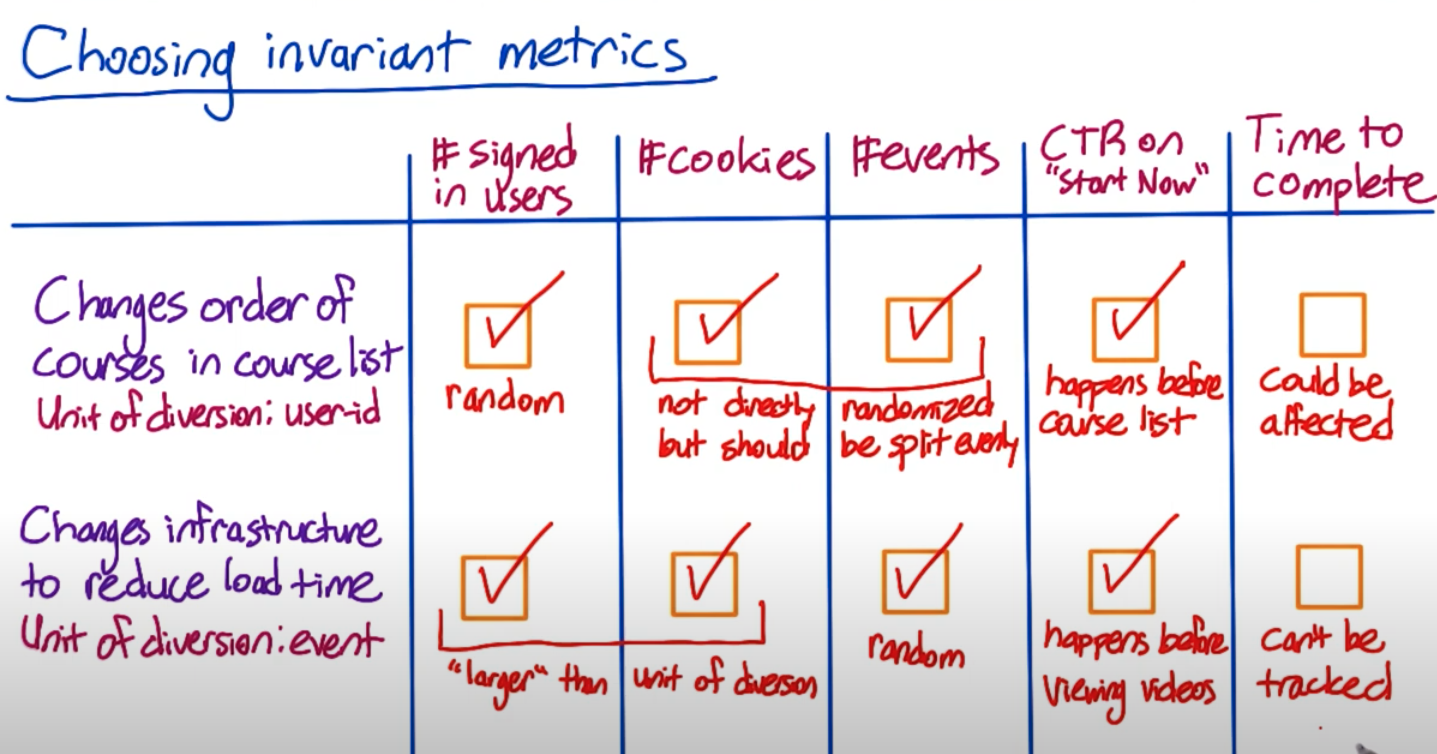 Choosing invariant metrics
#signed in users
#cookies
#events
CTR on "Start Now"
Time to complete
Changes order of
courses in course list
Unit of diversion: user-id
random
not directly randomized
but should be split evenly
happens before
course list
Could be
affected
Changes infrastructure
to reduce load time
Unit of diversion: event
"larger" than unit of diversion
random
happens before
viewing videos
can't be
tracked